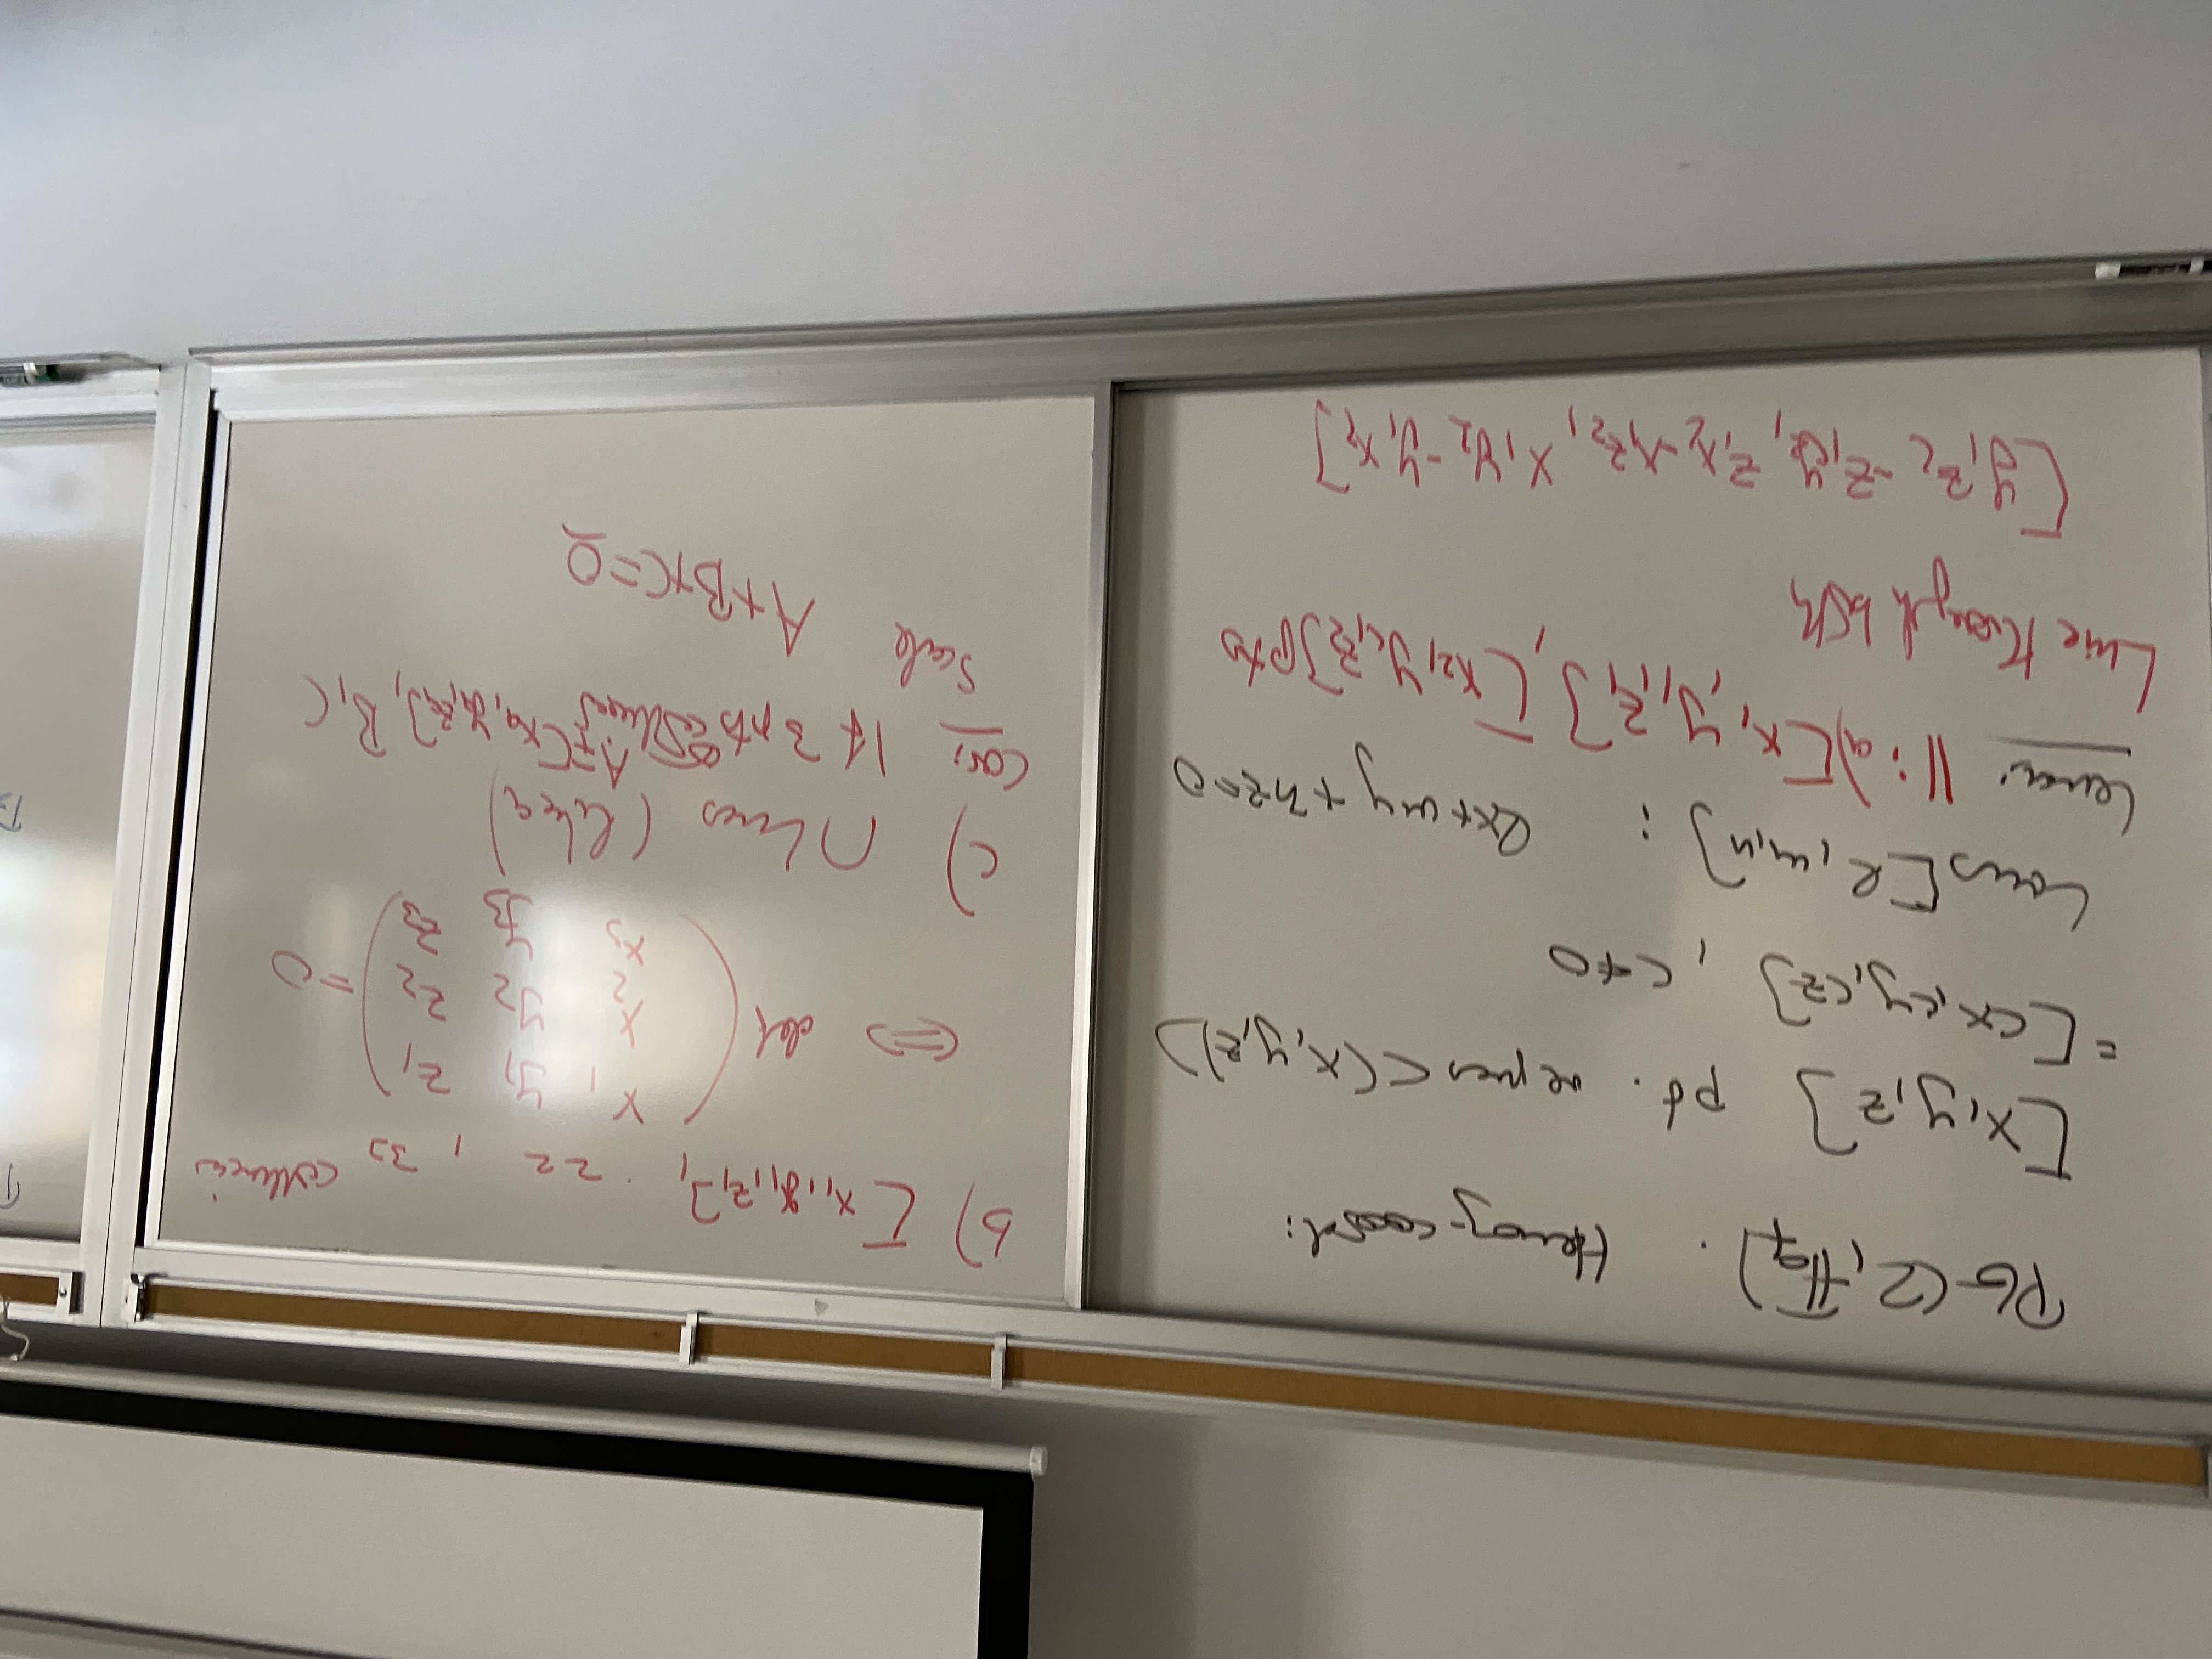 PG(2, 𝔽q). Homog. coord:
[x, y, z] pt. repres <(x, y, z)>
= [cx, cy, cz], c≠0
Lines [l, m, n] : lx + my + nz = 0
Lemma 11: a) [x₁, y₁, z₁], [x₂, y₂, z₂] pts
Line through both
[y₁z₂ - z₁y₂, z₁x₂ - x₁z₂, x₁y₂ - y₁x₂]
b) [x₁, y₁, z₁], .. 22, 33 collinear
⟺ det ( x₁ y₁ z₁
x₂ y₂ z₂
x₃ y₃ z₃ ) = 0
c) ∩ Lines (like a)
Cor: If 3 pts collinear A=[x₁, y₁, z₁], B, C
Scale A+B+C=0